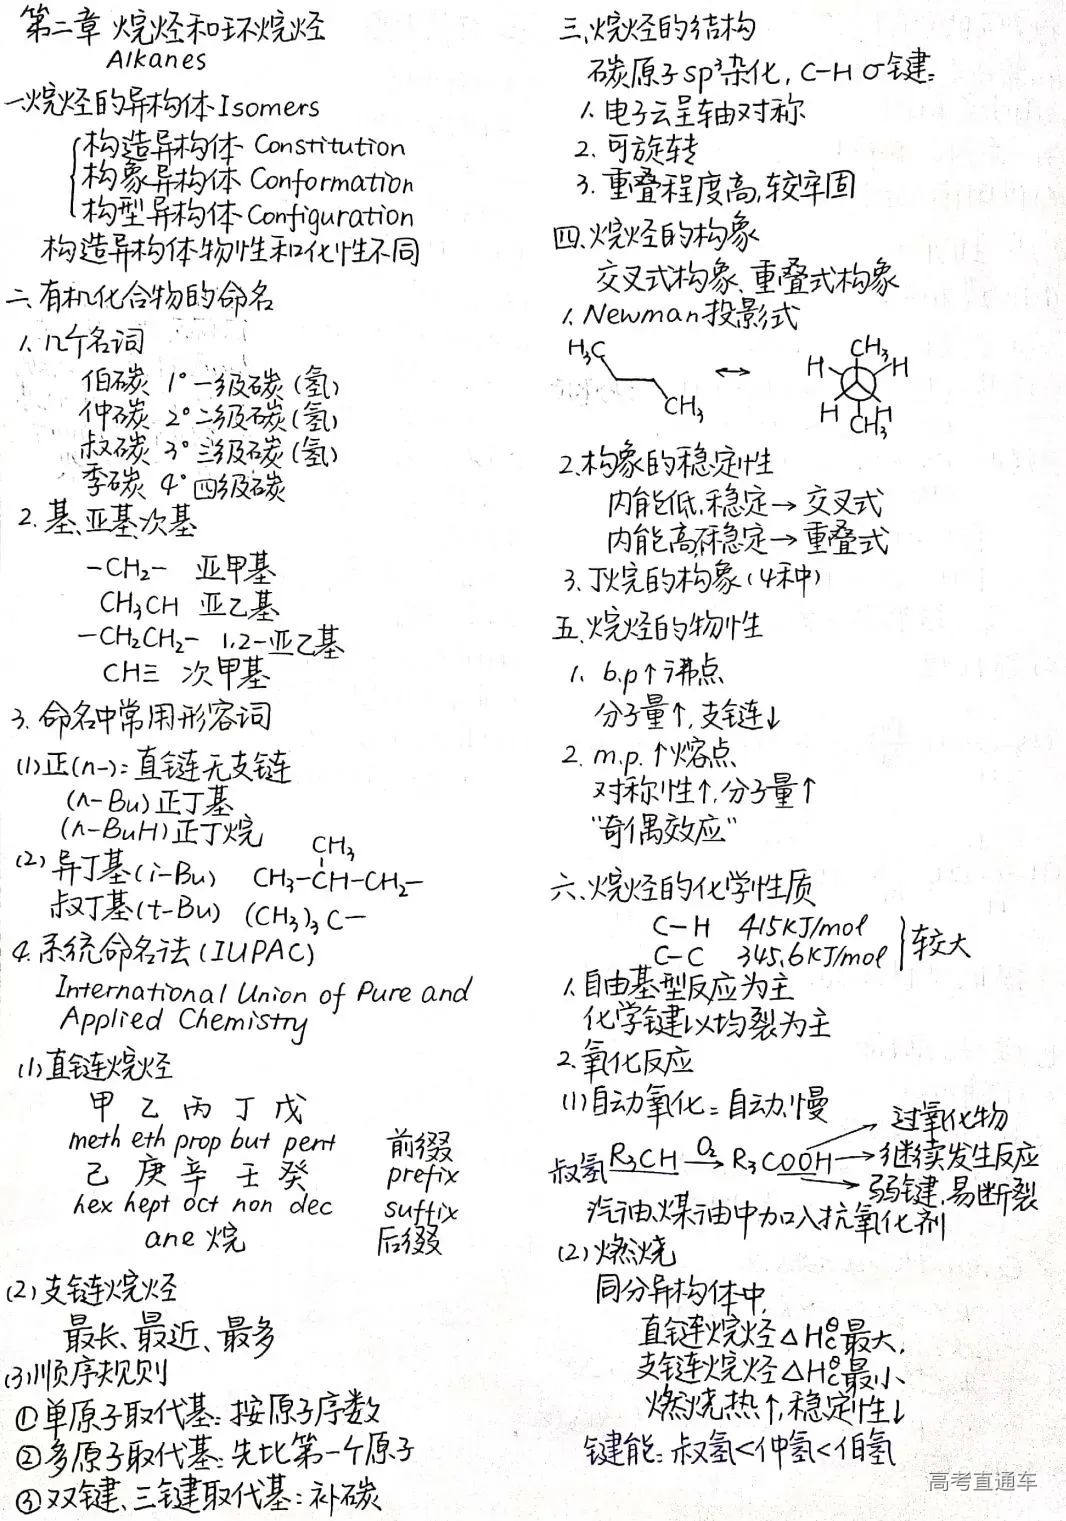 第二章 烷烃和环烷烃
Alkanes
一、烷烃的异构体 Isomers
构造异构体 Constitution
构象异构体 Conformation
构型异构体 Configuration
构造异构体物性和化性不同
二、有机化合物的命名
1. 几个名词
伯碳 1° 一级碳(氢)
仲碳 2° 二级碳(氢)
叔碳 3° 三级碳(氢)
季碳 4° 四级碳
2. 基、亚基、次基
-CH₂- 亚甲基
CH₃CH 亚乙基
-CH₂CH₂- 1,2-亚乙基
CH≡ 次甲基
3. 命名中常用形容词
(1) 正(n-): 直链无支链
(n-Bu) 正丁基
(n-BuH) 正丁烷
(2) 异丁基(i-Bu) CH₃-CH-CH₂-
CH₃
叔丁基(t-Bu) (CH₃)₃C-
4. 系统命名法(IUPAC)
International Union of Pure and
Applied Chemistry
(1) 直链烷烃
甲 乙 丙 丁 戊
meth eth prop but pent 前缀
己 庚 辛 壬 癸 prefix
hex hept oct non dec suffix
ane 烷 后缀
(2) 支链烷烃
最长、最近、最多
(3) 顺序规则
① 单原子取代基: 按原子序数
② 多原子取代基: 先比第一个原子
③ 双键、三键取代基: 补碳
三、烷烃的结构
碳原子 sp³杂化, C-H σ键:
1. 电子云呈轴对称
2. 可旋转
3. 重叠程度高,较牢固
四、烷烃的构象
交叉式构象、重叠式构象
1. Newman投影式
H₃C
CH₃
↔
CH₃
H H
H H
CH₃
2. 构象的稳定性
内能低,稳定→交叉式
内能高,不稳定→重叠式
3. 丁烷的构象(4种)
五、烷烃的物性
1. b.p↑沸点
分子量↑,支链↓
2. m.p.↑熔点
对称性↑,分子量↑
"奇偶效应"
六、烷烃的化学性质
C-H 415KJ/mol
C-C 345.6KJ/mol
较大
1. 自由基型反应为主
化学键以均裂为主
2. 氧化反应
(1) 自动氧化: 自动、慢
叔氢 R₃CH O₂→ R₃COOH
→过氧化物
→继续发生反应
→弱键,易断裂
汽油、煤油中加入抗氧化剂
(2) 燃烧
同分异构体中,
直链烷烃△Hc°最大,
支链烷烃△Hc°最小、
燃烧热↑,稳定性↓
键能: 叔氢<仲氢<伯氢
高考直通车